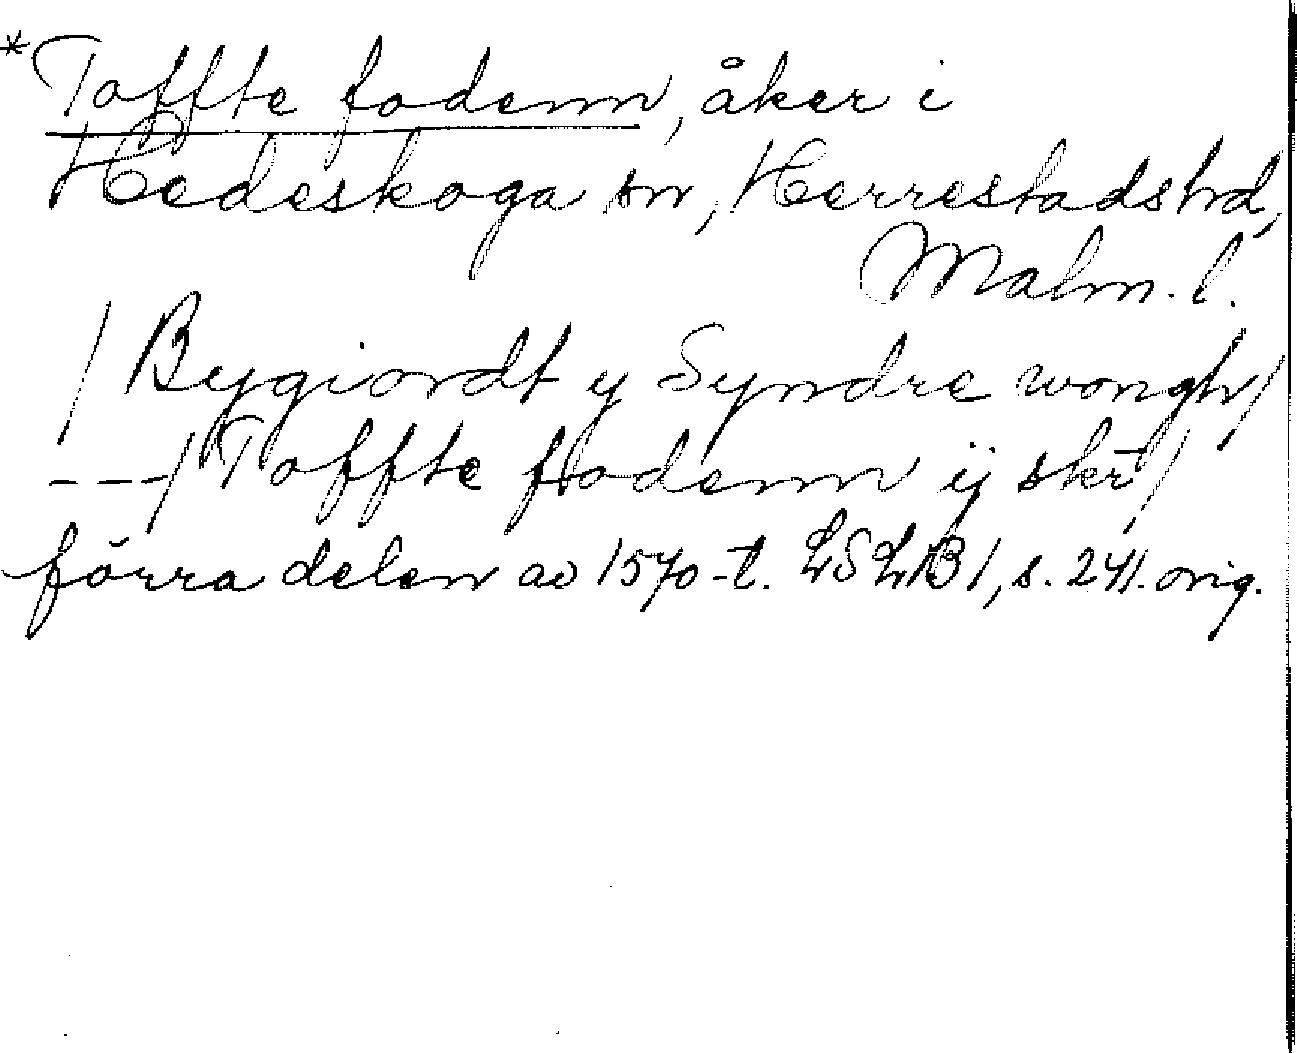 *Toffte fodenn, åker i
Hedeskoga sn, Herrestads hd,
Malm. l.
/ Bygiordt y Syndre wongh/
---/ Toffte fodenn ij skr /
förra delen av 1570-t. LSLB 1, s. 241. orig.